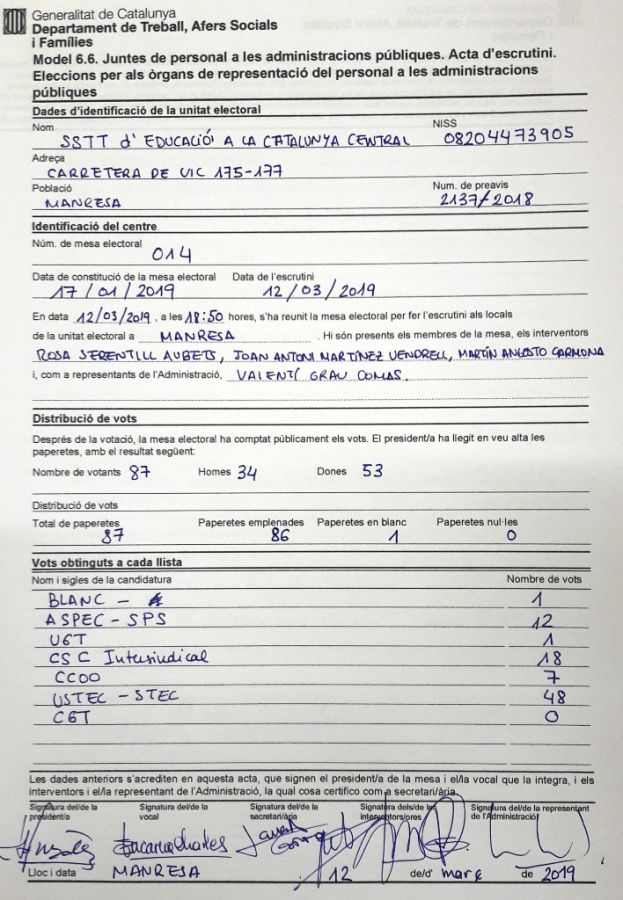 Generalitat de Catalunya
Departament de Treball, Afers Socials
i Famílies
Model 6.6. Juntes de personal a les administracions públiques. Acta d'escrutini.
Eleccions per als òrgans de representació del personal a les administracions
públiques
Dades d'identificació de la unitat electoral
Nom NISS
SSTT d' EDUCACIÓ A LA CATALUNYA CENTRAL 08204473905
Adreça
CARRETERA DE VIC 175-177
Població Num. de preavis
MANRESA 2137/2018
Identificació del centre
Núm. de mesa electoral
014
Data de constitució de la mesa electoral Data de l'escrutini
17/01/2019 12/03/2019
En data 12/03/2019, a les 18:50 hores, s'ha reunit la mesa electoral per fer l'escrutini als locals
de la unitat electoral a MANRESA . Hi són presents els membres de la mesa, els interventors
ROSA SERENTILL AUBETS, JOAN ANTONI MARTÍNEZ VENDRELL, MARTÍN ANGOSTO CARMONA
i, com a representants de l'Administració, VALENTÍ GRAU COMAS.
Distribució de vots
Després de la votació, la mesa electoral ha comptat públicament els vots. El president/a ha llegit en veu alta les
paperetes, amb el resultat següent:
Nombre de votants 87 Homes 34 Dones 53
Distribució de vots
Total de paperetes Paperetes emplenades Paperetes en blanc Paperetes nul·les
87 86 1 0
Vots obtinguts a cada llista
Nom i sigles de la candidatura Nombre de vots
BLANC - 1
ASPEC-SPS 12
UGT 1
CSC Intersindical 18
CCOO 7
USTEC-STEC 48
CGT 0
Les dades anteriors s'acrediten en aquesta acta, que signen el president/a de la mesa i el/la vocal que la integra, i els
interventors i el/la representant de l'Administració, la qual cosa certifico com a secretari/ària.
Signatura del/de la Signatura del/de la Signatura del/de la Signatura dels/de les Signatura del/de la representant
president/a vocal secretari/ària interventors/ores de l'Administració
Lloc i data MANRESA , 12 de/d' març de 2019